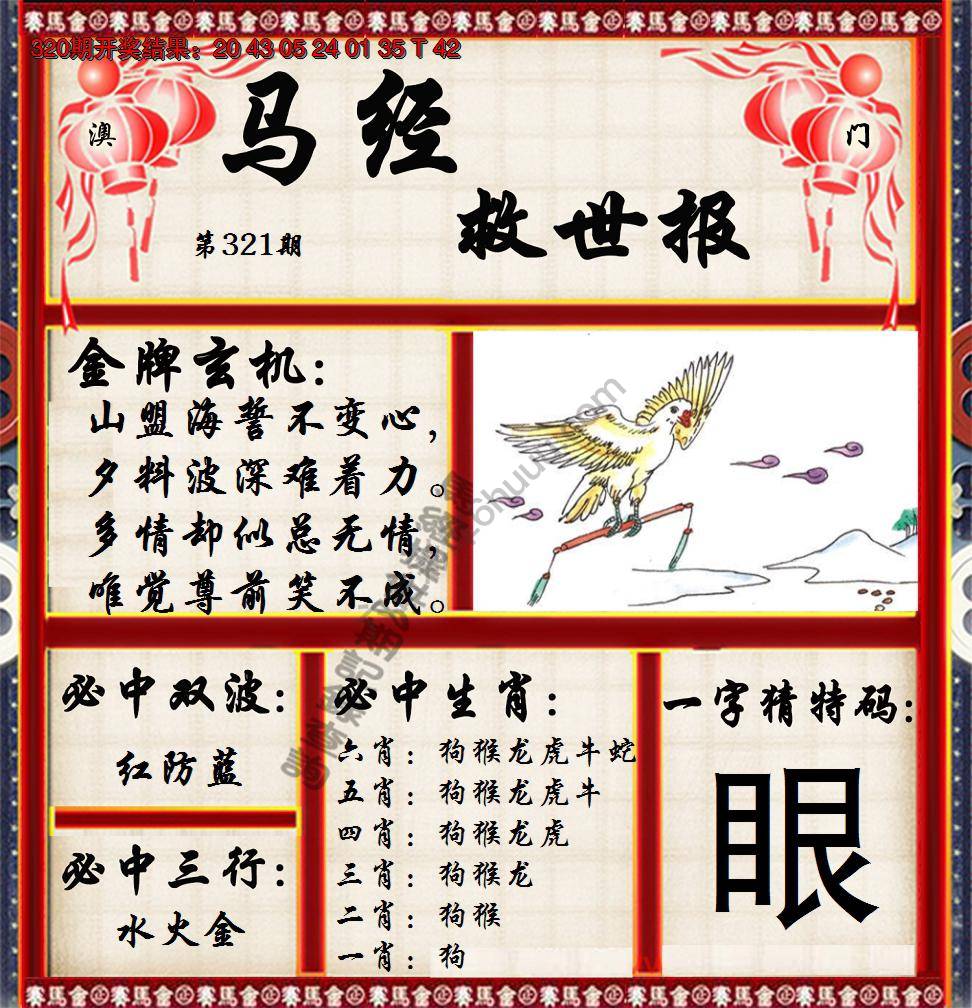 320期开奖结果：20 43 05 24 01 35 T 42
澳
门
马经
救世报
第321期
金牌玄机：
山盟海誓不变心，
夕料波深难着力。
多情却似总无情，
唯觉尊前笑不成。
必中双波：
红防蓝
必中三行：
水火金
必中生肖：
六肖：狗猴龙虎牛蛇
五肖：狗猴龙虎牛
四肖：狗猴龙虎
三肖：狗猴龙
二肖：狗猴
一肖：狗
一字猜特码：
眼